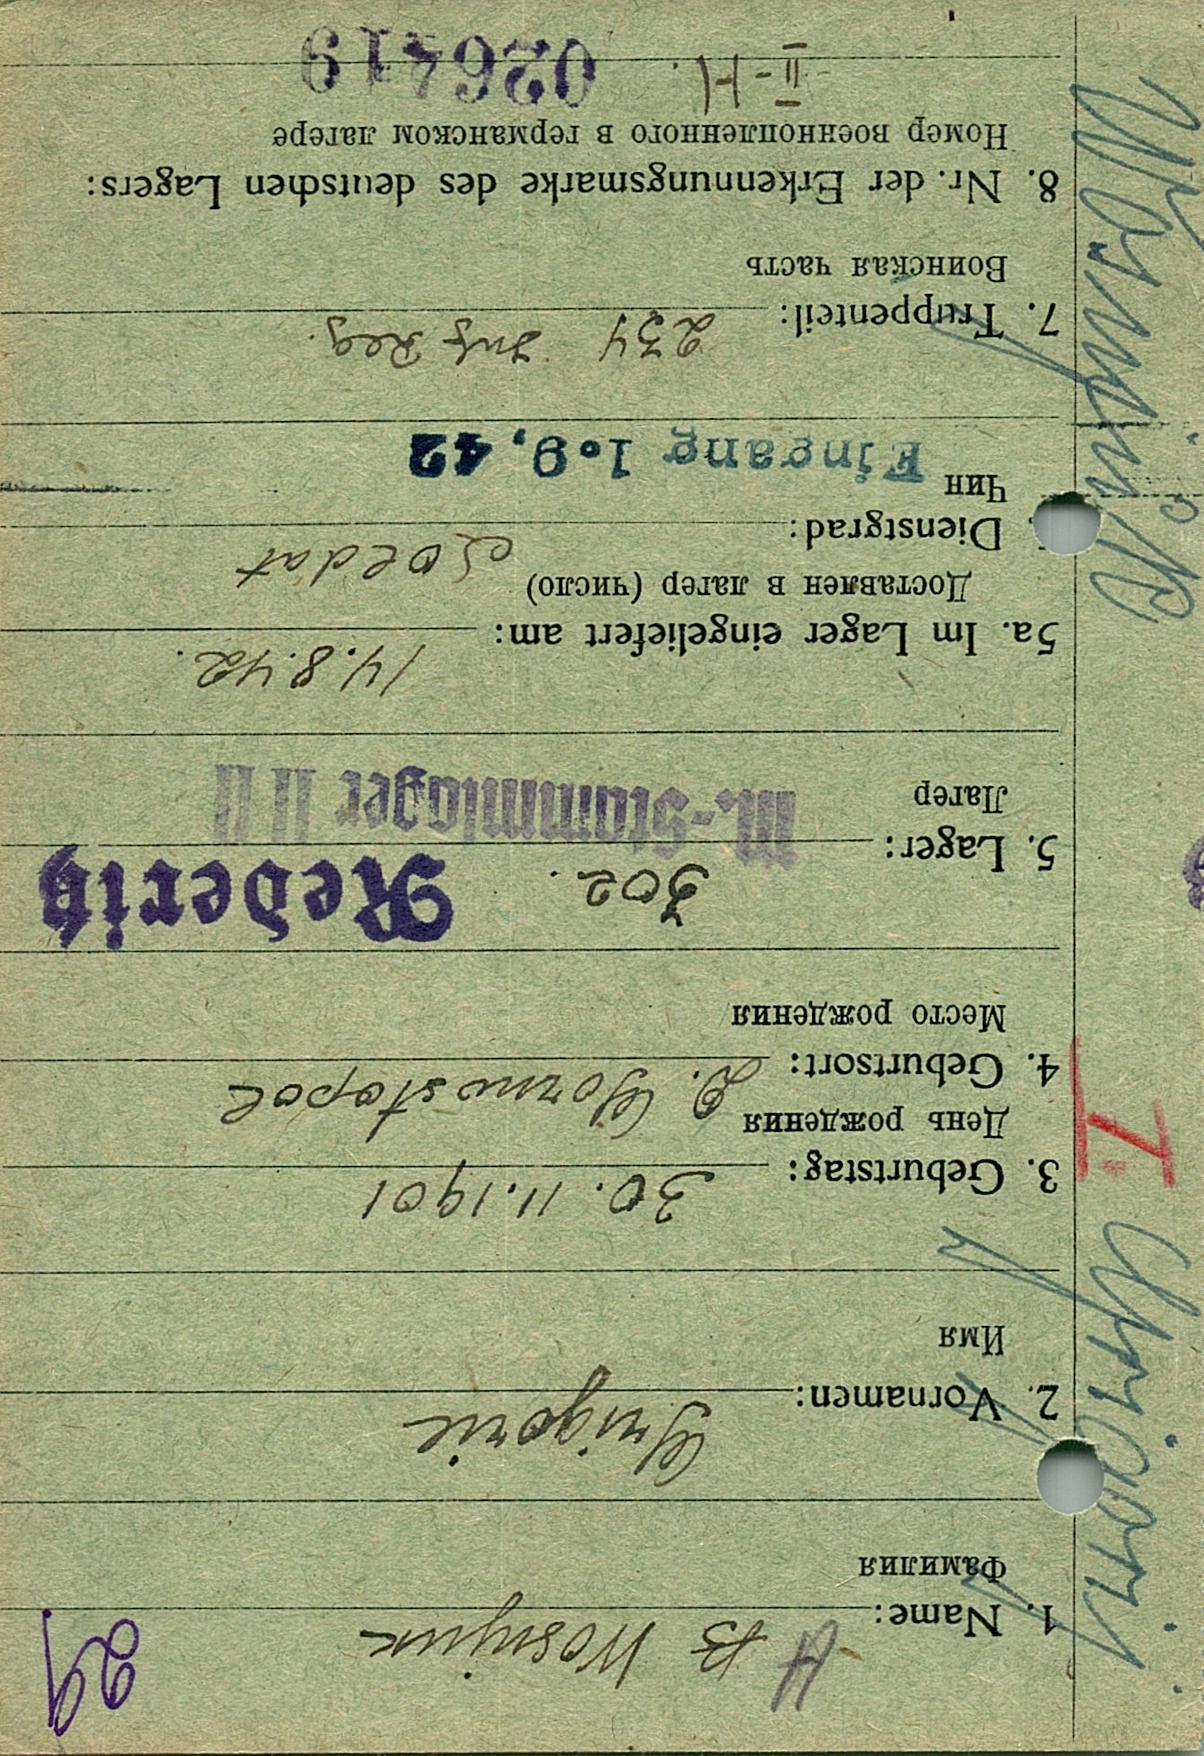 29
1. Name: B Wosnjuk
Фамилия
2. Vornamen: Grigorie
Имя
3. Geburtstag: 30.11.1901
День рождения
4. Geburtsort: D. Gornostopol
Место рождения
5. Lager: 302. Rederitz
M.-Stammlager II H
Лагер
5a. Im Lager eingeliefert am: 14.8.42.
Доставлен в лагер (число)
Dienstgrad: Soldat
Чин Eingang 1.9.42
7. Truppenteil: 234 Inf Reg.
Воинская часть
8. Nr. der Erkennungsmarke des deutschen Lagers:
Номер военнопленного в германском лагере
II-H. 026419
Grigorij
I